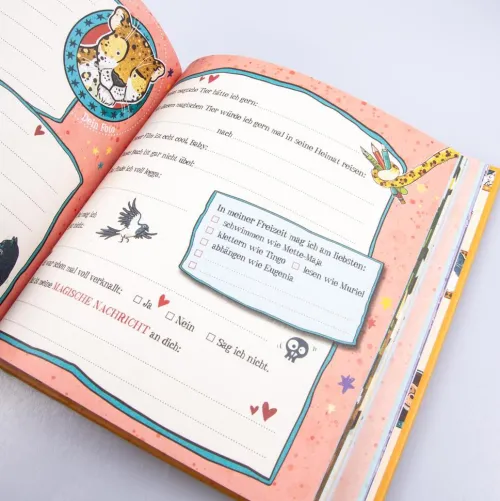 Dein Foto
magische Tier hätte ich gern:
magischen Tier würde ich gern mal in seine Heimat reisen:
nach
Film ist echt cool, Baby:
Buch ist gar nicht übel:
finde ich voll legga:
mag ich
In meiner Freizeit mag ich am liebsten:
schwimmen wie Mette-Maja
klettern wie Tingo
lesen wie Muriel
abhängen wie Eugenia
schon mal voll verknallt:
Ja
Nein
Sag ich nicht.
ist meine MAGISCHE NACHRICHT an dich: